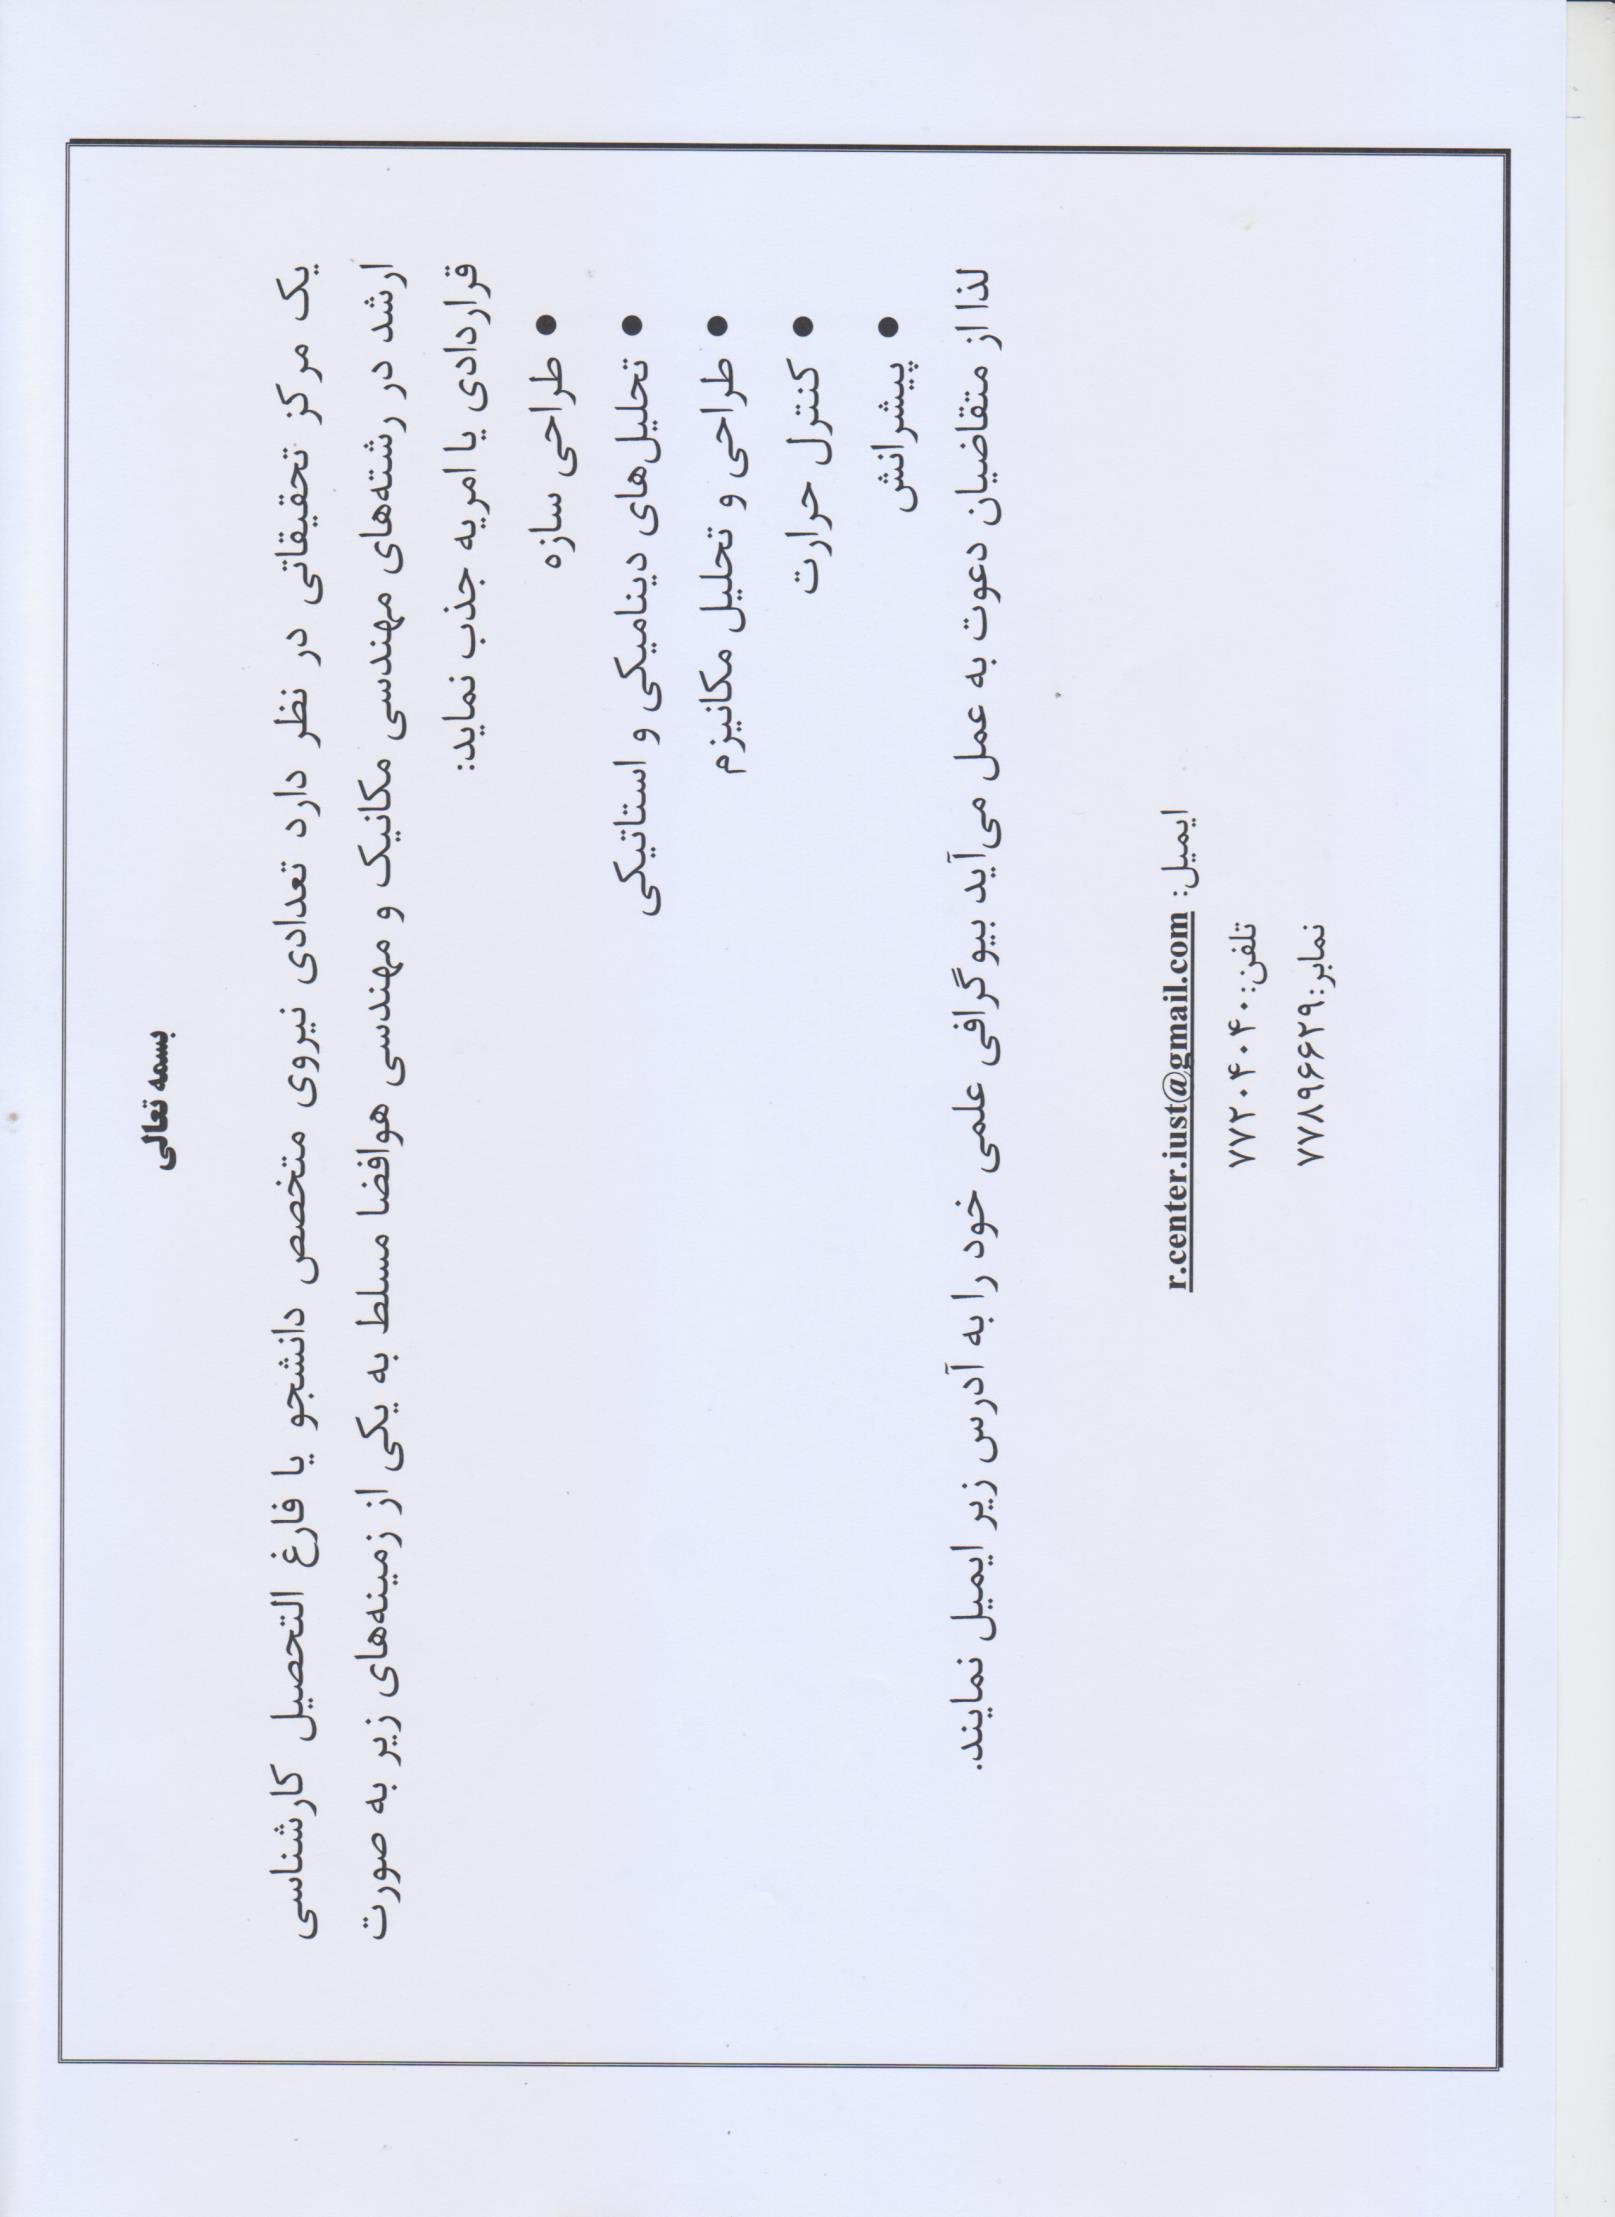 بسمه تعالی
یک مرکز تحقیقاتی در نظر دارد تعدادی نیروی متخصص دانشجو یا فارغ التحصیل کارشناسی
ارشد در رشته‌های مهندسی مکانیک و مهندسی هوافضا مسلط به یکی از زمینه‌های زیر به صورت
قراردادی یا امریه جذب نماید:
● طراحی سازه
● تحلیل‌های دینامیکی و استاتیکی
● طراحی و تحلیل مکانیزم
● کنترل حرارت
● پیشرانش
لذا از متقاضیان دعوت به عمل می‌آید بیوگرافی علمی خود را به آدرس زیر ایمیل نمایند.
ایمیل: r.center.iust@gmail.com
تلفن: ۷۷۲۰۴۰۴۰
نمابر: ۷۷۸۹۶۶۲۹